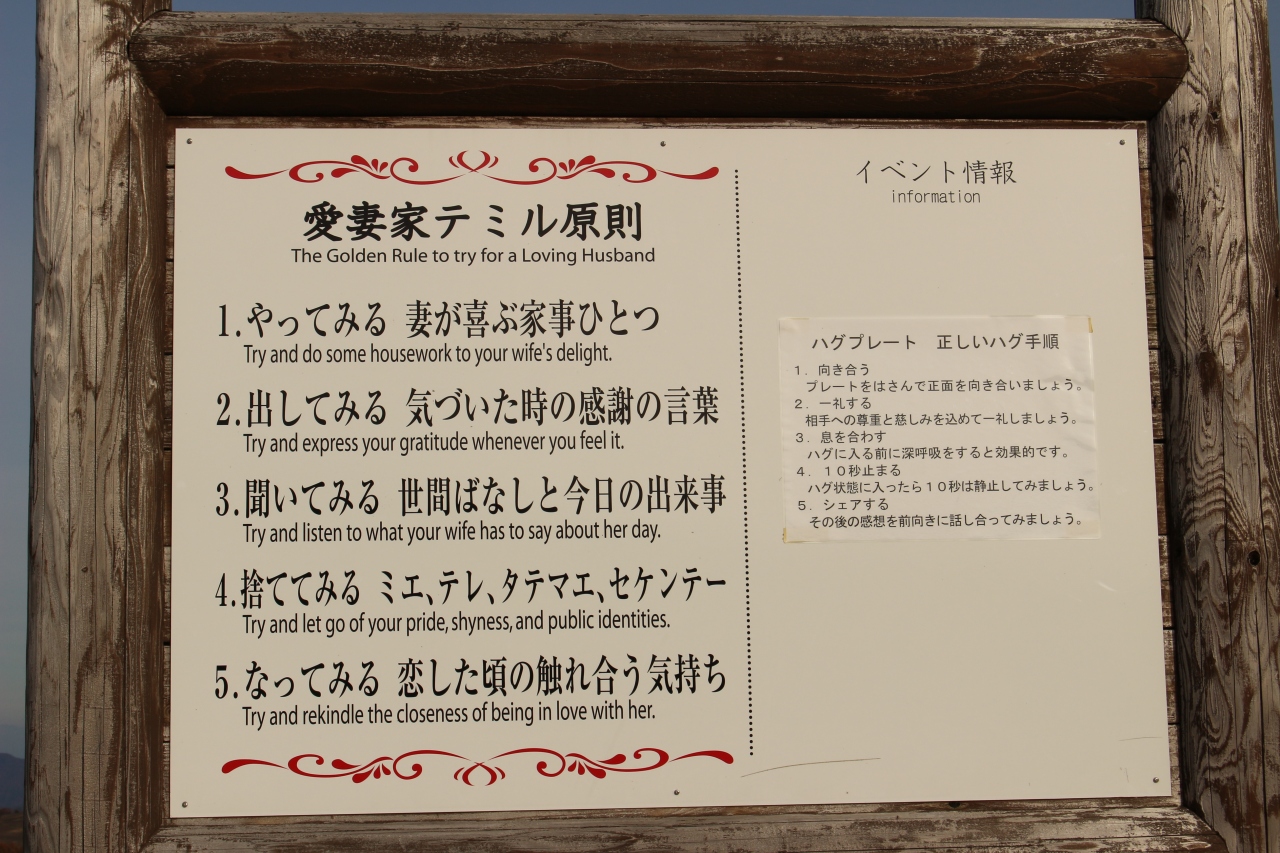 愛妻家テミル原則
The Golden Rule to try for a Loving Husband
1.やってみる 妻が喜ぶ家事ひとつ
Try and do some housework to your wife's delight.
2.出してみる 気づいた時の感謝の言葉
Try and express your gratitude whenever you feel it.
3.聞いてみる 世間ばなしと今日の出来事
Try and listen to what your wife has to say about her day.
4.捨ててみる ミエ、テレ、タテマエ、セケンテー
Try and let go of your pride, shyness, and public identities.
5.なってみる 恋した頃の触れ合う気持ち
Try and rekindle the closeness of being in love with her.
イベント情報
information
ハグプレート 正しいハグ手順
1．向き合う
プレートをはさんで正面を向き合いましょう。
2．一礼する
相手への尊重と慈しみを込めて一礼しましょう。
3．息を合わす
ハグに入る前に深呼吸をすると効果的です。
4．10秒止まる
ハグ状態に入ったら10秒は静止してみましょう。
5．シェアする
その後の感想を前向きに話し合ってみましょう。